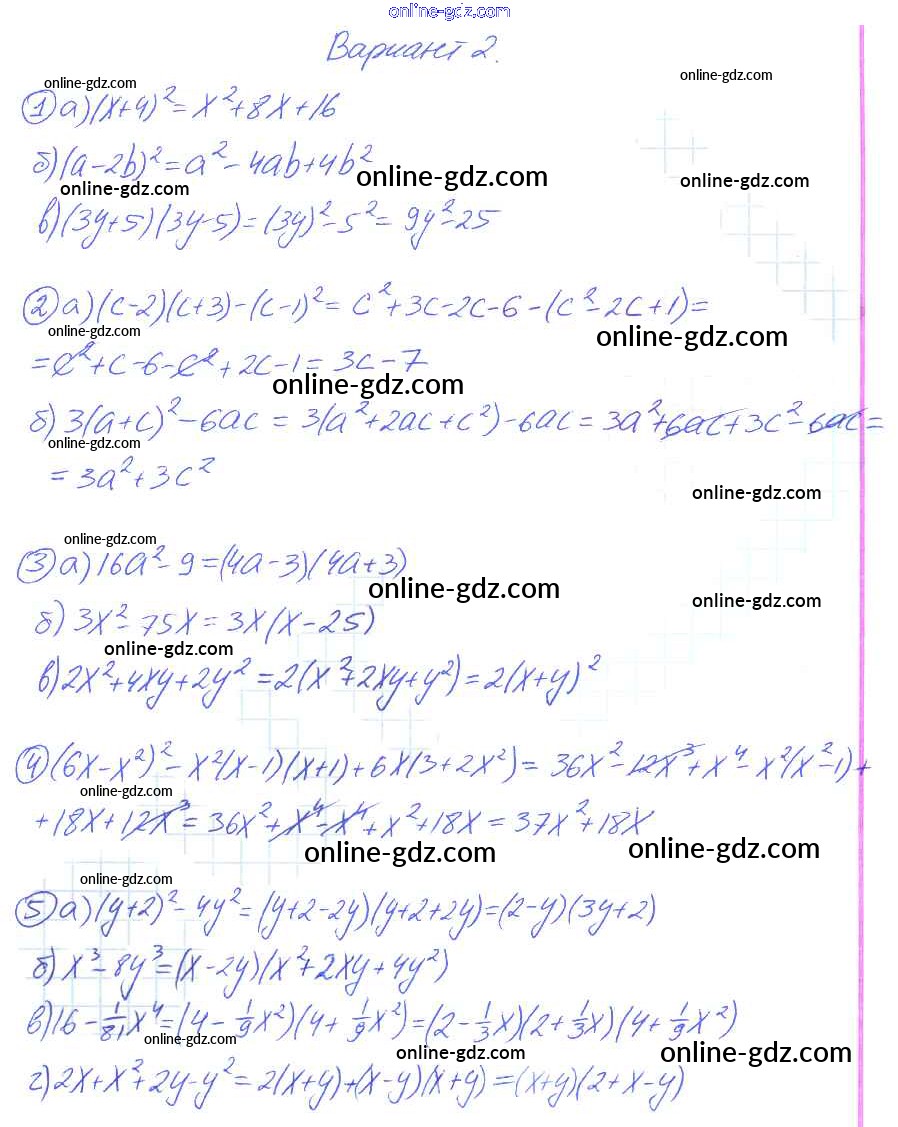 online-gdz.com
Вариант 2.
online-gdz.com
online-gdz.com
① а) (x+4)² = x²+8x+16
б) (a-2b)² = a²-4ab+4b²
online-gdz.com
online-gdz.com
online-gdz.com
в) (3y+5)(3y-5) = (3y)²-5² = 9y²-25
② а) (c-2)(c+3)-(c-1)² = c²+3c-2c-6-(c²-2c+1)=
online-gdz.com
online-gdz.com
= c²+c-6-c²+2c-1 = 3c-7
online-gdz.com
б) 3(a+c)²-6ac = 3(a²+2ac+c²)-6ac = 3a²+6ac+3c²-6ac=
online-gdz.com
= 3a²+3c²
online-gdz.com
online-gdz.com
③ а) 16a²-9=(4a-3)(4a+3)
online-gdz.com
online-gdz.com
б) 3x²-75x = 3x(x-25)
online-gdz.com
в) 2x²+4xy+2y² = 2(x²+2xy+y²) = 2(x+y)²
④ (6x-x²)²-x²(x-1)(x+1)+6x(3+2x²) = 36x²-12x³+x⁴-x²(x²-1)+
online-gdz.com
+18x+12x³ = 36x²+x⁴-x⁴+x²+18x = 37x²+18x
online-gdz.com
online-gdz.com
online-gdz.com
⑤ а) (y+2)²-4y² = (y+2-2y)(y+2+2y)=(2-y)(3y+2)
б) x³-8y³=(x-2y)(x²+2xy+4y²)
в) 16-1/81x⁴=(4-1/9x²)(4+1/9x²)=(2-1/3x)(2+1/3x)(4+1/9x²)
online-gdz.com
online-gdz.com
online-gdz.com
г) 2x+x²+2y-y² = 2(x+y)+(x-y)(x+y) = (x+y)(2+x-y)